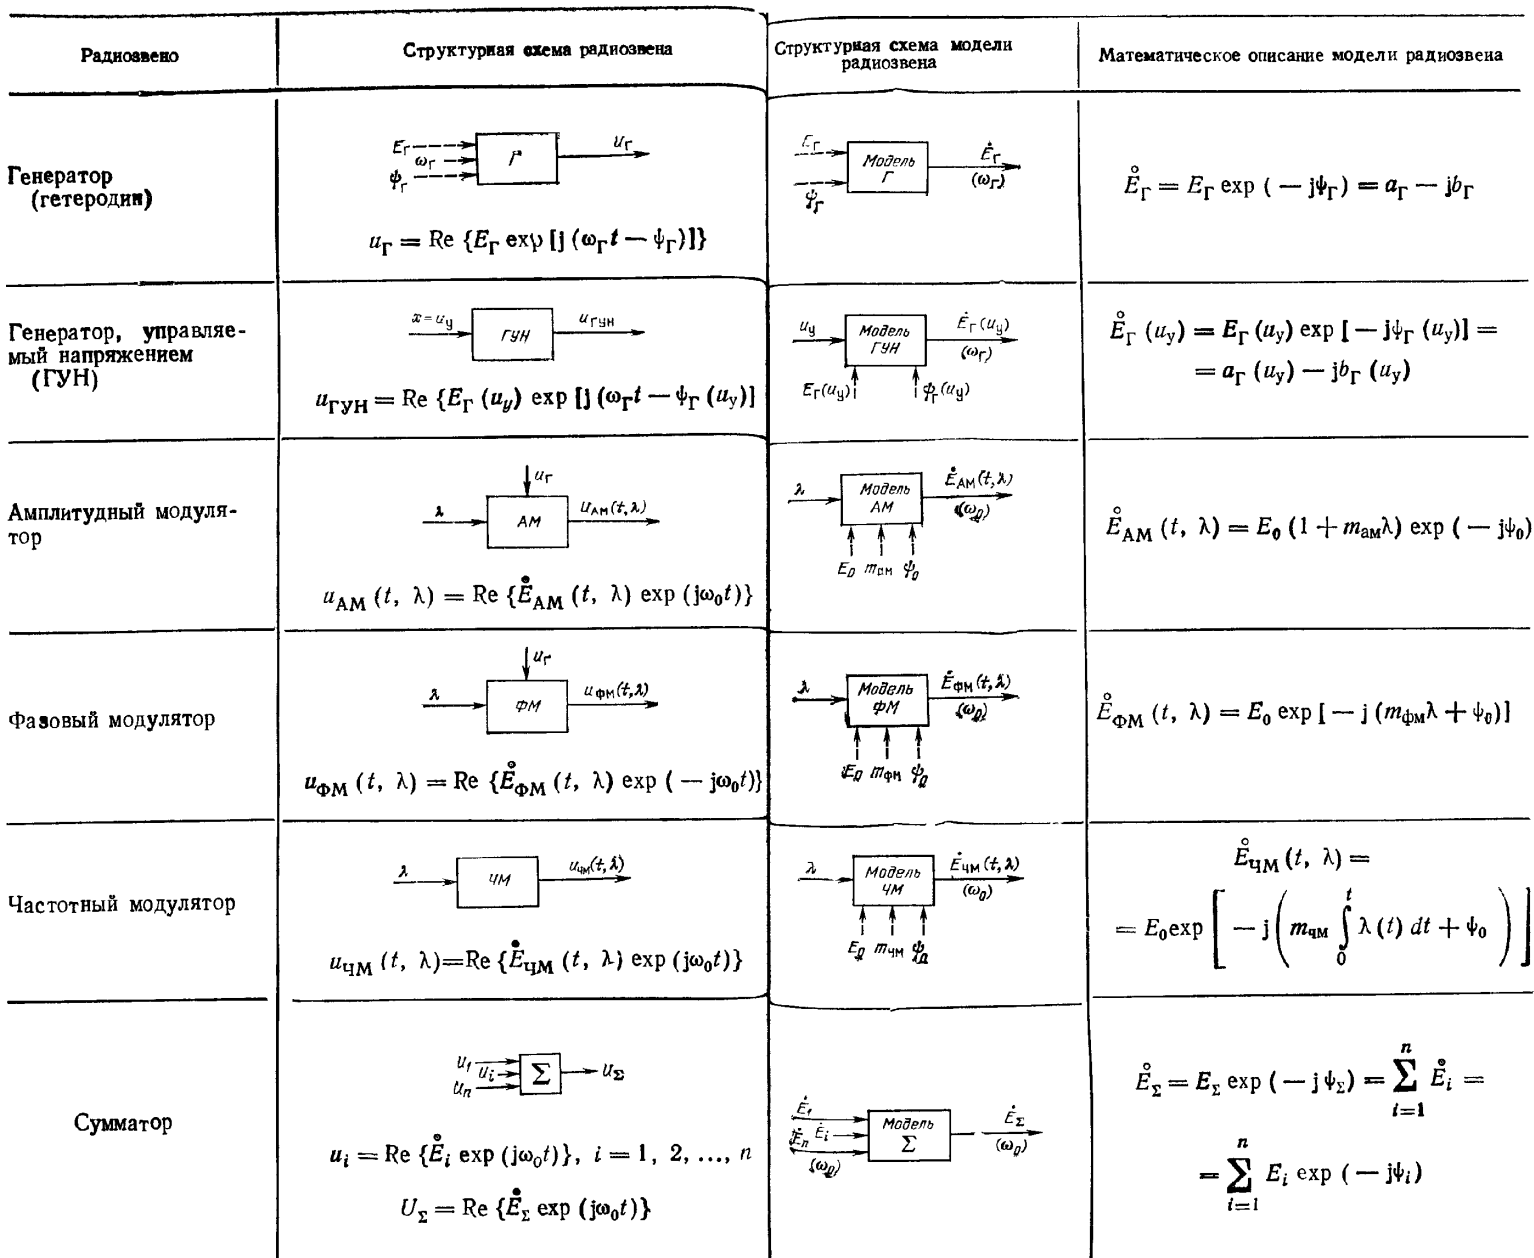 Радиозвено
Структурная схема радиозвена
Структурная схема модели
радиозвена
Математическое описание модели радиозвена
Генератор
(гетеродин)
E_Г
ω_Г
ψ_Г
Г
u_Г
u_Г = Re {E_Г exp [j (ω_Г t — ψ_Г)]}
E_Г
ψ_Г
Модель
Г
Ė_Г
(ω_Г)
E̊_Г = E_Г exp ( — jψ_Г) = a_Г — jb_Г
Генератор, управляе-
мый напряжением
(ГУН)
x=u_у
ГУН
u_ГУН
u_ГУН = Re {E_Г (u_у) exp [j (ω_Г t — ψ_Г (u_у)]
u_у
Модель
ГУН
Ė_Г(u_у)
(ω_Г)
E_Г(u_у)
ψ_Г(u_у)
E̊_Г (u_у) = E_Г (u_у) exp [ — jψ_Г (u_у)] =
= a_Г (u_у) — jb_Г (u_у)
Амплитудный модуля-
тор
u_Г
λ
АМ
u_АМ(t,λ)
u_АМ (t, λ) = Re {E̊_АМ (t, λ) exp (jω₀t)}
λ
Модель
АМ
Ė_АМ(t,λ)
(ω₀)
E₀ m_ам ψ₀
E̊_АМ (t, λ) = E₀ (1 + m_ам λ) exp ( — jψ₀)
Фазовый модулятор
u_Г
λ
ФМ
u_ФМ(t,λ)
u_ФМ (t, λ) = Re {E̊_ФМ (t, λ) exp ( — jω₀t)}
λ
Модель
ФМ
Ė_ФМ(t,λ)
(ω₀)
E₀ m_ФМ ψ₀
E̊_ФМ (t, λ) = E₀ exp [ — j (m_фм λ + ψ₀)]
Частотный модулятор
λ
ЧМ
u_ЧМ(t,λ)
u_ЧМ (t, λ)=Re {E̊_ЧМ (t, λ) exp (jω₀t)}
λ
Модель
ЧМ
Ė_ЧМ(t,λ)
(ω₀)
E₀ m_ЧМ ψ₀
E̊_ЧМ (t, λ) =
= E₀ exp [ — j ( m_чм ∫₀ᵗ λ (t) dt + ψ₀ ) ]
Сумматор
u₁
u_i
u_n
Σ
u_Σ
u_i = Re {E̊_i exp (jω₀t)}, i = 1, 2, ..., n
U_Σ = Re {E̊_Σ exp (jω₀t)}
Ė₁
Ė_n Ė_i
(ω₀)
Модель
Σ
Ė_Σ
(ω₀)
E̊_Σ = E_Σ exp ( — jψ_Σ) = ∑_{i=1}^{n} E̊_i =
= ∑_{i=1}^{n} E_i exp ( — jψ_i)